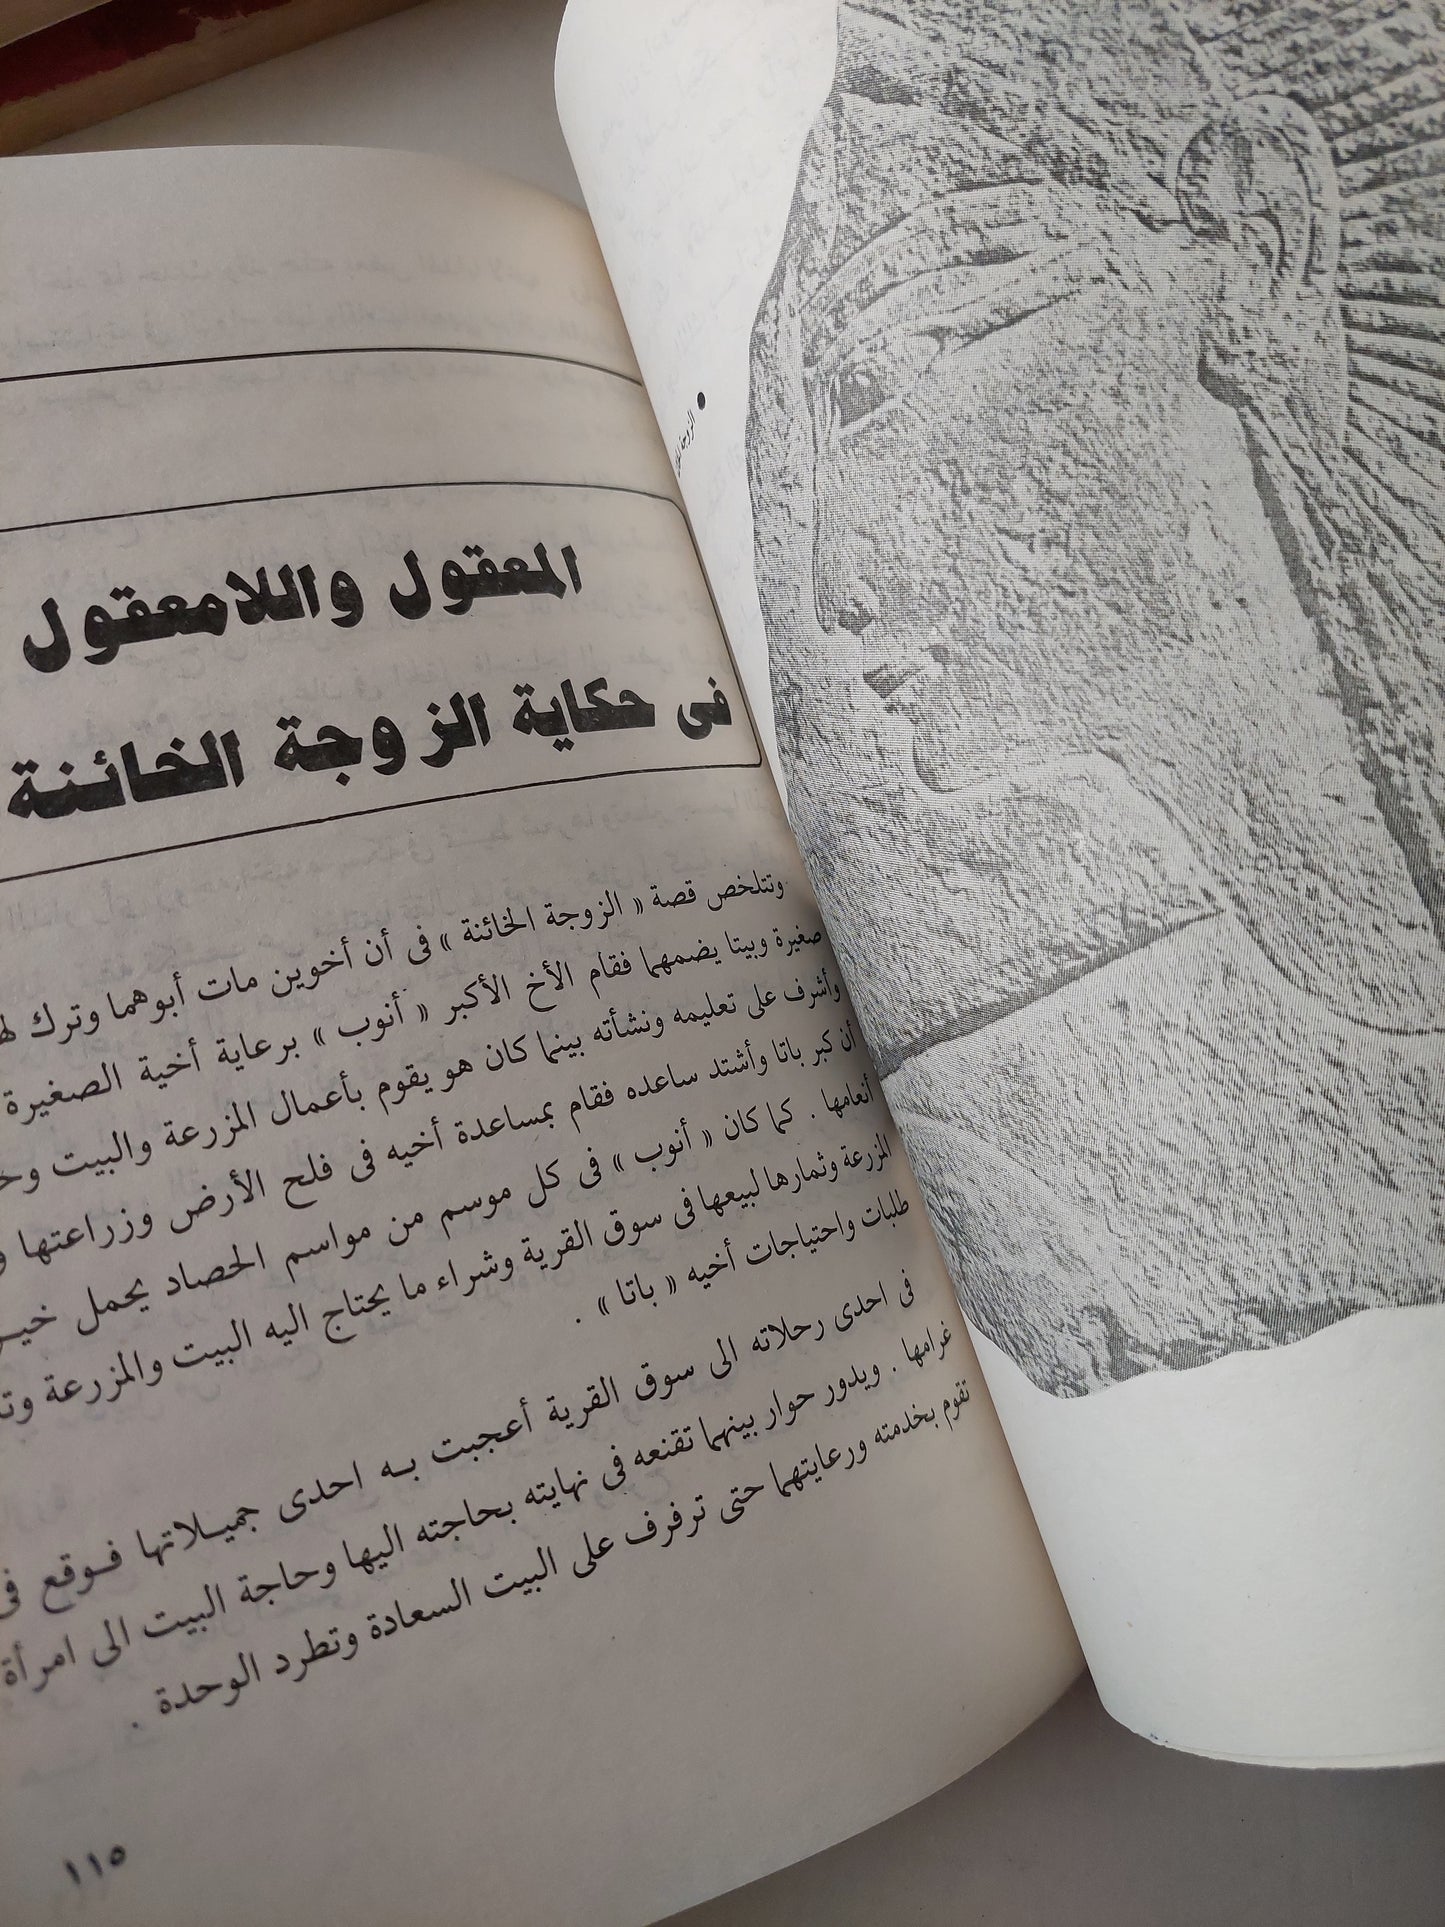 المعقول واللامعقول
فى حكاية الزوجة الخائنة
وتتلخص قصة « الزوجة الخائنة » فى أن أخوين مات أبوهما وترك
صغيرة وبيتا يضمهما فقام الأخ الأكبر « أنوب » برعاية أخية الصغيرة
وأشرف على تعليمه ونشأته بينما كان هو يقوم بأعمال المزرعة والبيت
أن كبر باتا وأشتد ساعده فقام بمساعدة أخيه فى فلح الأرض وزراعتها
أنعامها . كما كان « أنوب » فى كل موسم من مواسم الحصاد يحمل
المزرعة وثمارها لبيعها فى سوق القرية وشراء ما يحتاج اليه البيت والمزرعة
طلبات واحتياجات أخيه « باتا » .
فى احدى رحلاته الى سوق القرية أعجبت به احدى جميلاتها فوقع فى
غرامها . ويدور حوار بينهما تقنعه فى نهايته بحاجته اليها وحاجة البيت الى امرأة
تقوم بخدمته ورعايتهما حتى ترفرف على البيت السعادة وتطرد الوحدة .
١١٥
• الزوجة